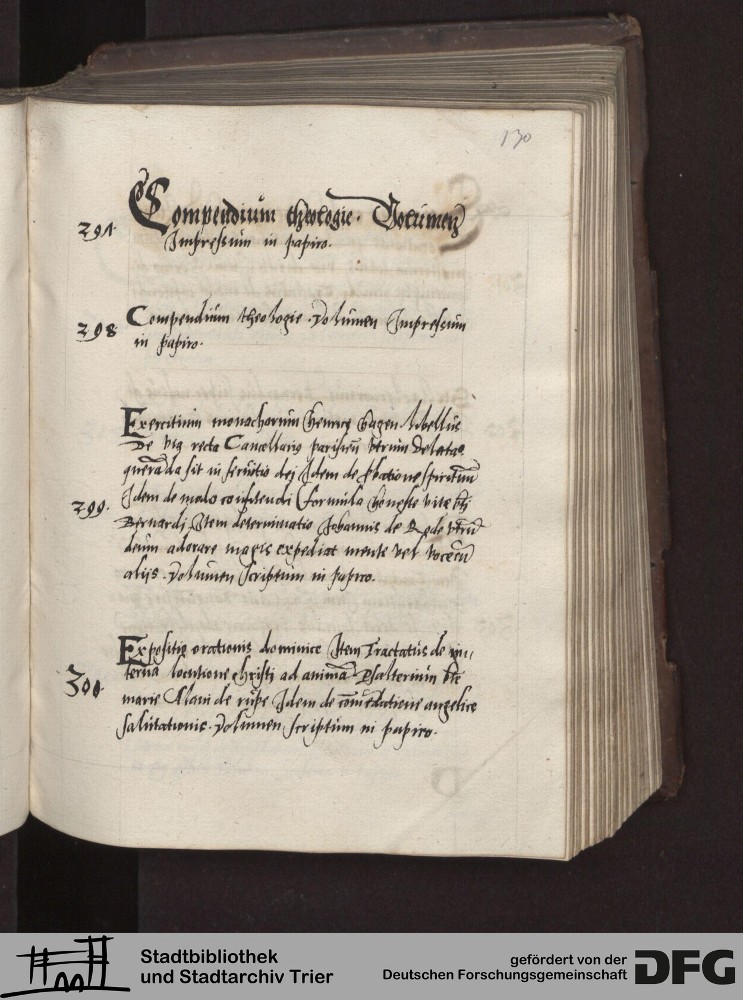 130
291. Compendium theologie. Volumen
Impressum in papiro.
298 Compendium theologie. Volumen Impressum
in papiro.
Exercitium monachorum Henrici Hagen libellus
De via recta Cancellarij parisieñ Utrum
sit in seruitio dei Idem de ꝓbatione spirituũ
299. Idem de modo confitendi Formula honeste vite bti
Bernardi Item determinatio Johannis de Rode vtrũ
deum adorare magis expediat mente vel voce cũ
alijs. Volumen scriptum in papiro.
Expositio orationis dominice Item Tractatus de in-
terna locutione christi ad animã Psalterium bte
300. marie Alani de rupe Idem de cõmẽdatione angelice
salutationis. Volumen scriptum in papiro.
Stadtbibliothek
und Stadtarchiv Trier
gefördert von der
Deutschen Forschungsgemeinschaft
DFG